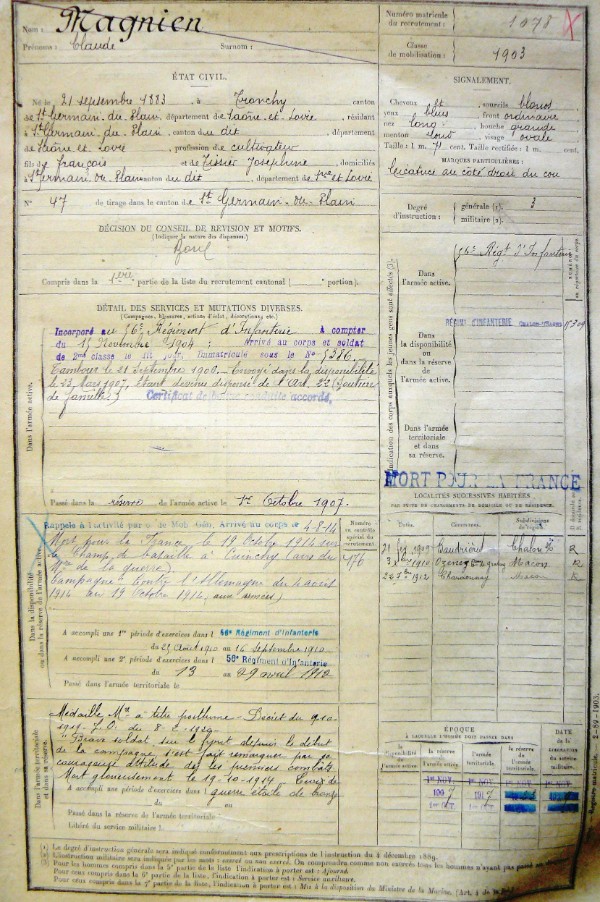 Nom : Magnien
Prénoms : Claude Surnom :
Numéro matricule
du recrutement : 1078
Classe
de mobilisation : 1903
ÉTAT CIVIL.
Né le 21 septembre 1883, à Tronchy canton
de St Germain-du-Plain, département de Saône-et-Loire, résidant
à St Germain-du-Plain, canton du dit, département
de Saône et Loire, profession de cultivateur
fils de françois et de Tissier Joséphine, domiciliés
à St Germain-du-Plain canton du dit, département de Sne et Loire
N° 47 de tirage dans le canton de St Germain-du-Plain
SIGNALEMENT.
Cheveux et sourcils blonds
yeux bleus front ordinaire
nez long, bouche grande
menton rond visage ovale
Taille : 1 m. cent. Taille rectifiée : 1 m. cent.
MARQUES PARTICULIÈRES :
Cicatrice au côté droit du cou
Degré
d'instruction : générale (1). 3
militaire (2).
DÉCISION DU CONSEIL DE REVISION ET MOTIFS.
(Indiquer la nature des dispenses.)
Bon
Compris dans la 1ère partie de la liste du recrutement cantonal ( portion).
DÉTAIL DES SERVICES ET MUTATIONS DIVERSES.
(Campagnes, blessures, actions d'éclat, décorations, etc.)
Incorporé au 56e Régiment d'Infanterie À compter
du 15 Novembre 1904; Arrivé au corps et soldat
de 2me classe le dit jour. Immatriculé sous le N° 5386.
Tambour le 21 Septembre 1906. Envoyé dans la disponibilité
le 23 Mars 1907, étant devenu dispensé de l'Art. 22 (Soutien
de famille)
Certificat de bonne conduite accordé.
Passé dans la réserve de l'armée active le 1er Octobre 1907.
Dans l'armée active.
Dans
l'armée active.
56e Régt d'Infanterie
Dans
la disponibilité
ou dans la réserve
de l'armée active.
RÉGIMENT D'INFANTERIE
Dans l'armée
territoriale et dans
sa réserve.
MORT POUR LA FRANCE
LOCALITÉS SUCCESSIVES HABITÉES
PAR SUITE DE CHANGEMENTS DE DOMICILE OU DE RÉSIDENCE.
Dates. Communes. Subdivisions
de région.
1910 Mâcon R
1912 Charnay Mâcon R
Rappelé à l'activité par o. de Mob. Gén. Arrivé au corps le 4-8-14
Mort pour la France le 19 Octobre 1914 sur
le Champ de bataille à Cuinchy (avis du
Mtre de la guerre).
Campagne Contre l'Allemagne du 4 août
1914 au 19 Octobre 1914, aux armées).
Numéro
au contrôle
spécial du
recrutement
476
A accompli une 1re période d'exercices dans l 56e Régiment d'Infanterie
du 25 Août 1910 au 16 Septembre 1910
A accompli une 2e période d'exercices dans l 56e Régiment d'Infanterie
du 13 au 29 avril 1912
Passé dans l'armée territoriale le
Médaille Mre à titre posthume. Décret du
J.O. du
"Brave soldat, sur le front depuis le début
de la campagne, s'est fait remarquer par sa
courageuse attitude dès les premiers combats.
Mort glorieusement le 19-10-1914. Croix de
guerre étoile de bronze
A accompli une période d'exercices dans l
du au
Passé dans la réserve de l'armée territoriale
Libéré du service militaire l
ÉPOQUE
À LAQUELLE L'HOMME DOIT PASSER DANS
DATE
DE LA
LIBÉRATION
DU SERVICE
MILITAIRE.
la disponibilité
de l'armée active.
la réserve
de l'armée
active.
l'armée
territoriale.
la réserve
de l'armée
territoriale.
1er NOV. 1er NOV.
1907 1917
1er OCT 1er OCT
(1) Le degré d'instruction générale sera indiqué conformément aux prescriptions de l'instruction du 4 décembre 1889.
(2) L'instruction militaire sera indiquée par les mots : exercé ou non exercé. On comprendra comme non exercés tous les hommes n'ayant pas passé
Pour les hommes compris dans la 5e partie de la liste l'indication à porter est : Ajourné.
Pour ceux compris dans la 6e partie de la liste, l'indication à porter est : Service auxiliaire.
Pour ceux compris dans la 7e partie de la liste, l'indication à porter est : Mis à la disposition du Ministre de la Marine. (Art. 4 de la